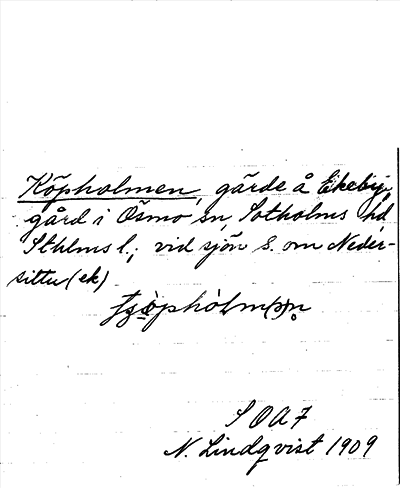 Köpholmen, gärde å Ekeby,
gård i Ösmo sn, Sotholms hd,
Sthlms l.; vid sjön S. om Neder-
sittu (ek)
SOA7
N. Lindqvist 1909